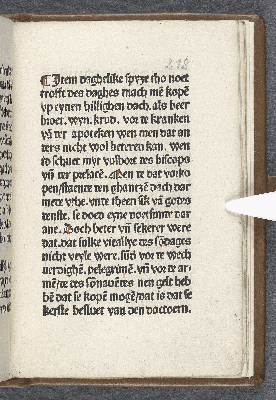 212
¶ Item daghelike spyze tho noet
trofft des daghes mach mē kopē
vp eynen hillighen dach. als beer
broet. wyn. krud. vor te kranken
vn̄ ter apoteken wen men dat an
ters nicht wol beteren kan. wen
id schuet myt vulbort tes biscops
vn̄ ter prelatē. Men te dat vorko
pen staente ten ghantzē dach dar
mete vthe. vnte theen sik vā godes
tenste. se doen eyne doetsunte dar
ane. Doch beter vn̄ sekerer were
dat. dat sulke vitallye des sōdages
nicht veyle were. sūd vor te wech
uerdighē. pelegrimē. vn̄ vor te ar
mē te tes sōnauētes nen gelt heb
bē dat se kopē mogē dat is dat se
kerste besluet van den doctoern.